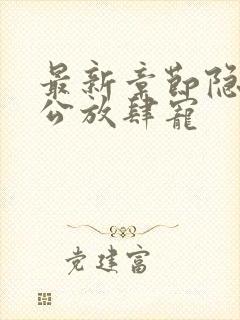 最新章节隐
公放肆宠
党建富